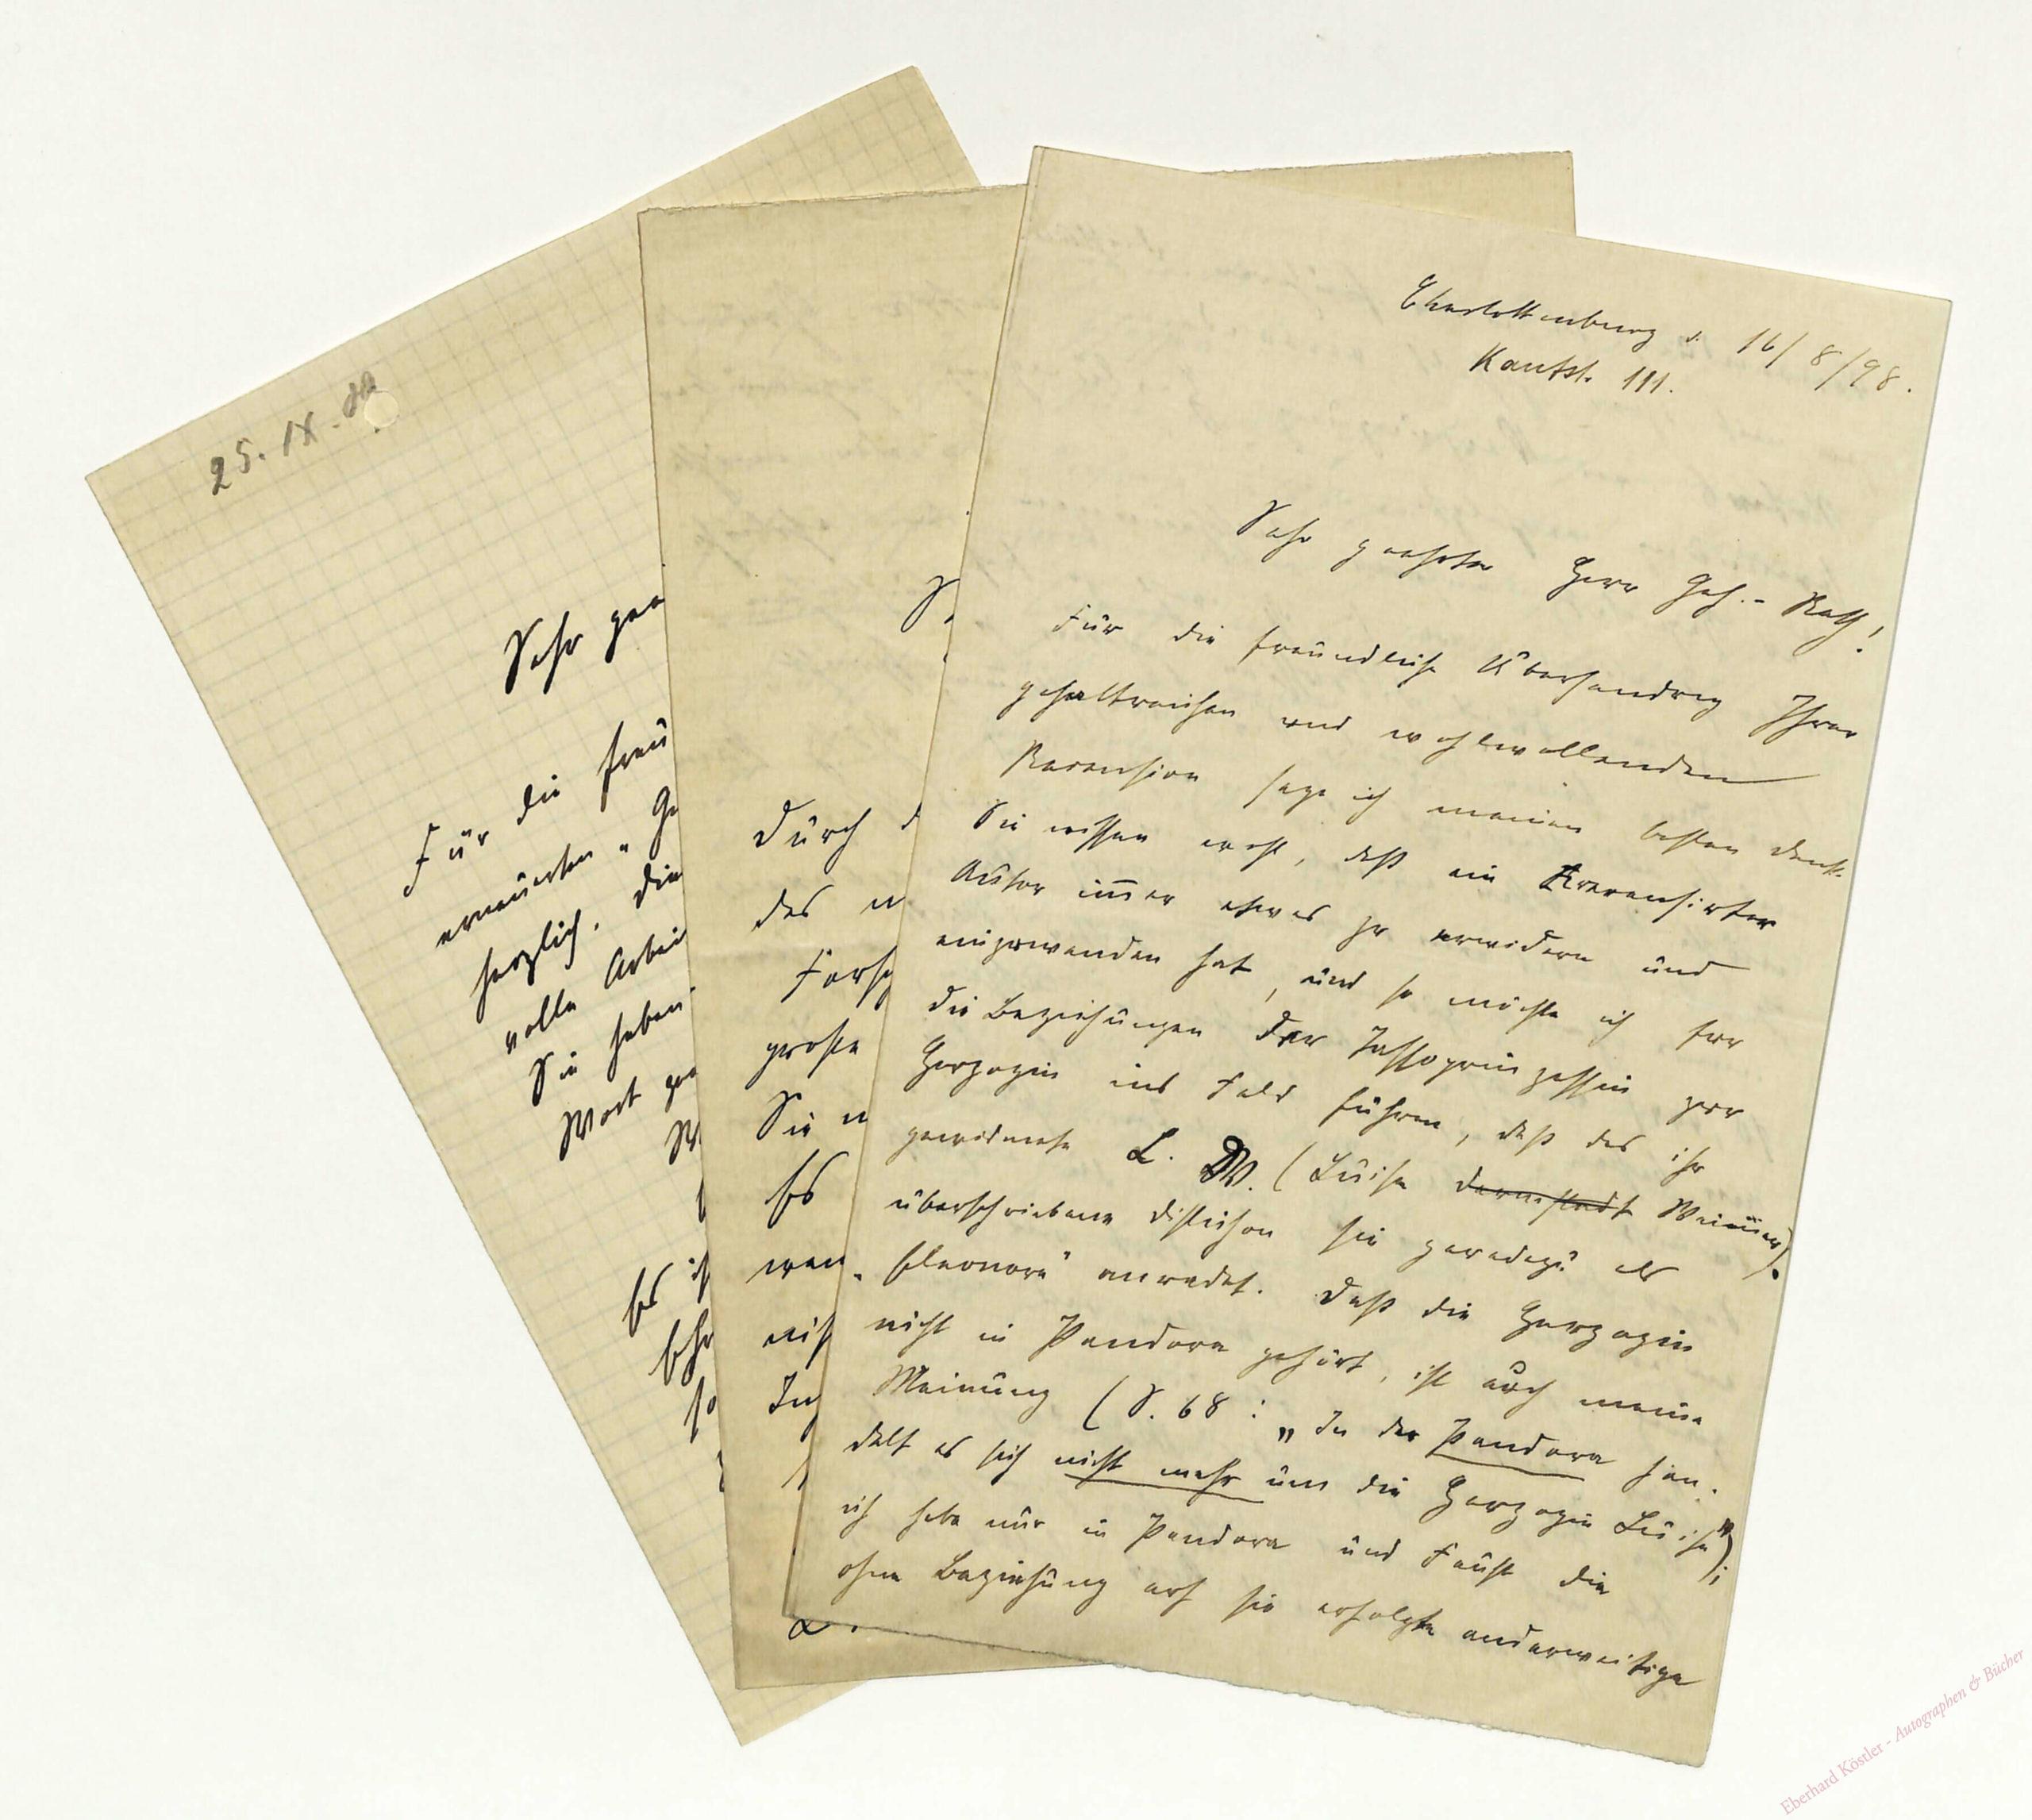 25. IX.
Sehr gee
Für die freu
erneuerten „Ge
herzlich. Die
volle Arbei
Sie haben
Wort ge
Es is
so
S
Durch d
des
Forsch
grosse
Sie
Es
wen
nich
Charlottenburg d. 16/8/98.
Kantstr. 111.
Sehr geehrter Herr Geh.-Rath!
Für die freundliche Übersendung Ihrer
gehaltreichen und wohlwollenden
Recension sage ich meinen besten Dank.
Sie wissen ja, daß ein recensirter
Autor immer etwas zu erwidern und
einzuwenden hat, und so möchte ich für
die Beziehungen der Tassoprinzessin zur
Herzogin ins Feld führen, daß das ihr
gewidmete L. W. (Luise Darmstadt Weimar)
überschriebene Distichon sie geradezu als
„Eleonore" anredet. Daß die Herzogin
nicht in Pandora gehört, ist auch meine
Meinung (S. 68: „In der Pandora han-
delt es sich nicht mehr um die Herzogin Luise");
ich habe nur in Pandora und Faust die
ohne Beziehung auf sie erfolgte anderweitige
Eberhard Köstler - Autographen & Bücher